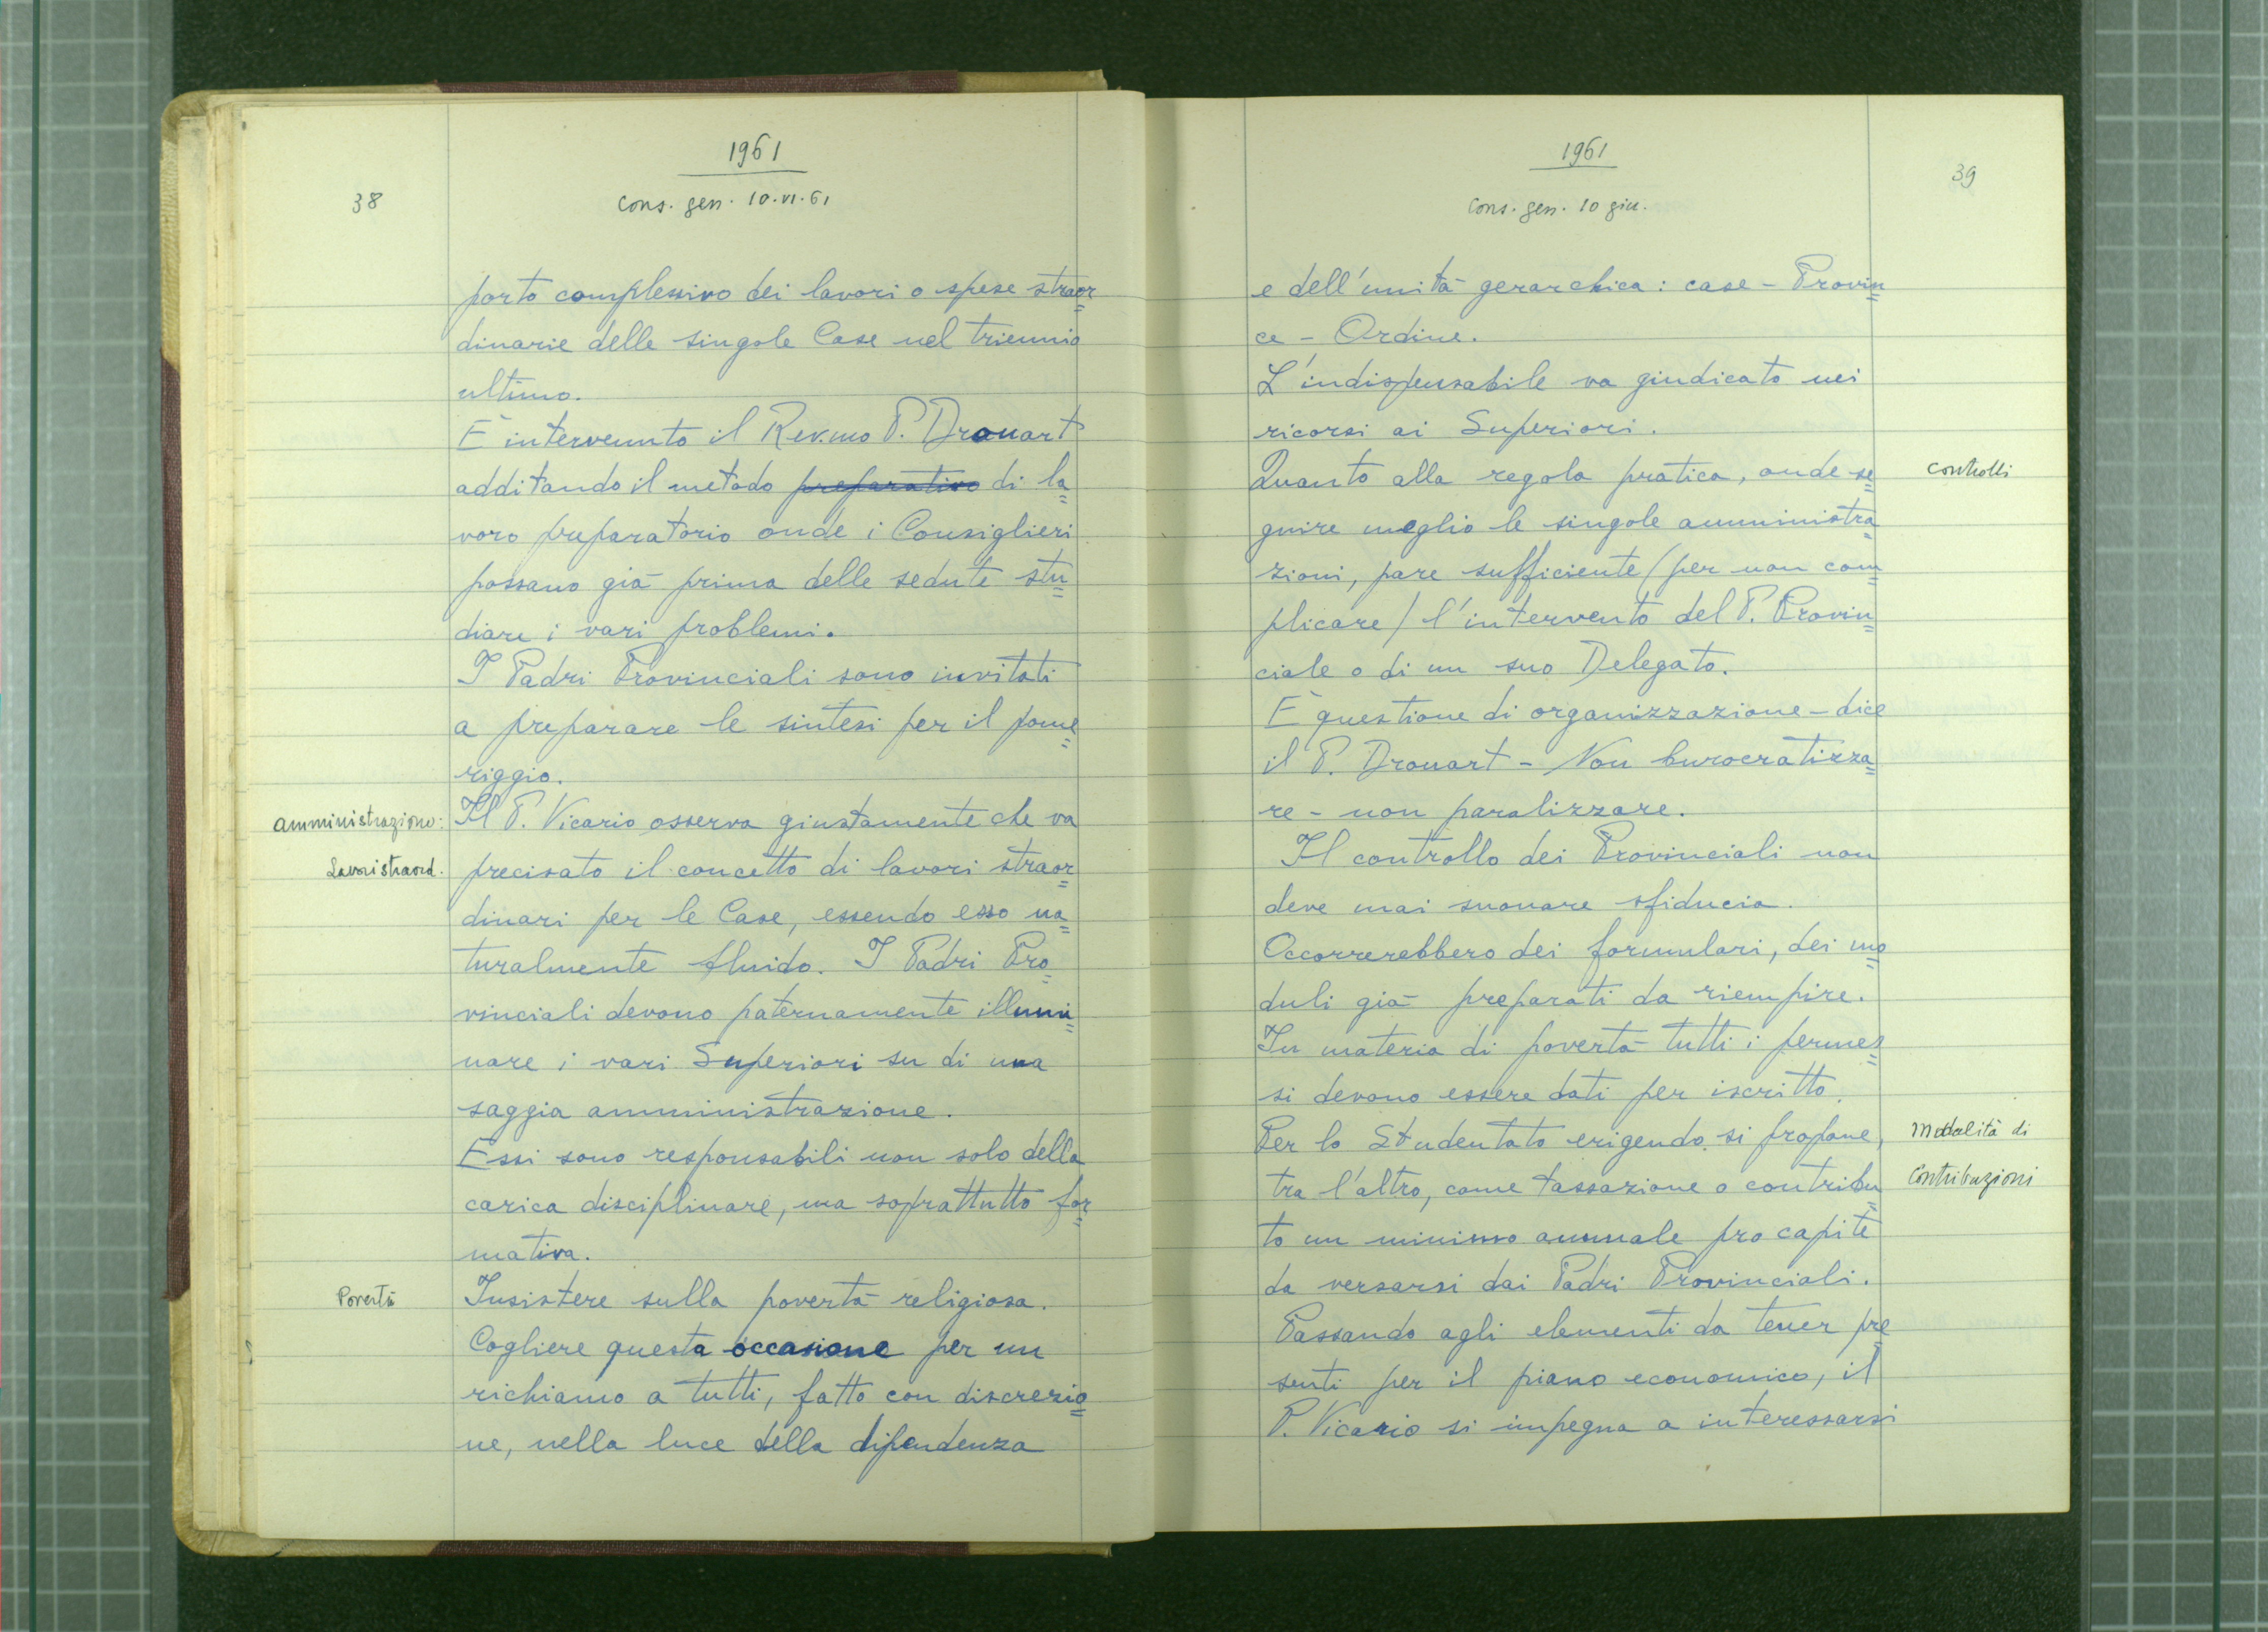 1961
38
Cons. gen. 10.VI.61
porto complessivo dei lavori o spese straor=
dinarie delle singole Case nel triennio
ultimo.
È intervenuto il Rev.mo P. Drouart
additando il metodo preparativo di la=
voro preparatorio onde i Consiglieri
possano già prima delle sedute stu=
diare i vari problemi.
I Padri Provinciali sono invitati
a preparare le sintesi per il pome=
riggio.
Amministrazione: Il P. Vicario osserva giustamente che va
Lavori straord. precisato il concetto di lavori straor=
dinari per le Case, essendo esso na=
turalmente fluido. I Padri Pro=
vinciali devono paternamente illumi=
nare i vari Superiori su di una
saggia amministrazione.
Essi sono responsabili non solo della
carica disciplinare, ma soprattutto for=
mativa.
Povertà Insistere sulla povertà religiosa.
Cogliere questa occasione per un
richiamo a tutti, fatto con discrezio=
ne, nella luce della dipendenza
1961
39
Cons. gen. 10 giu.
e dell'unità gerarchica: case - Provin=
ce - Ordine.
L'indispensabile va giudicato nei
ricorsi ai Superiori.
Quanto alla regola pratica, onde se= Controlli
guire meglio le singole amministra=
zioni, pare sufficiente (per non com=
plicare) l'intervento del P. Provin=
ciale o di un suo Delegato.
È questione di organizzazione - dice
il P. Drouart - Non burocratizza=
re - non paralizzare.
Il controllo dei Provinciali non
deve mai suonare sfiducia.
Occorrerebbero dei formulari, dei mo=
duli già preparati da riempire.
In materia di povertà tutti i permes=
si devono essere dati per iscritto.
Per lo Studentato erigendo si propone, Modalità di
tra l'altro, come tassazione o contribu= Contribuzioni
to un minimo annuale pro capite
da versarsi dai Padri Provinciali.
Passando agli elementi da tener pre=
senti per il piano economico, il
P. Vicario si impegna a interessarsi